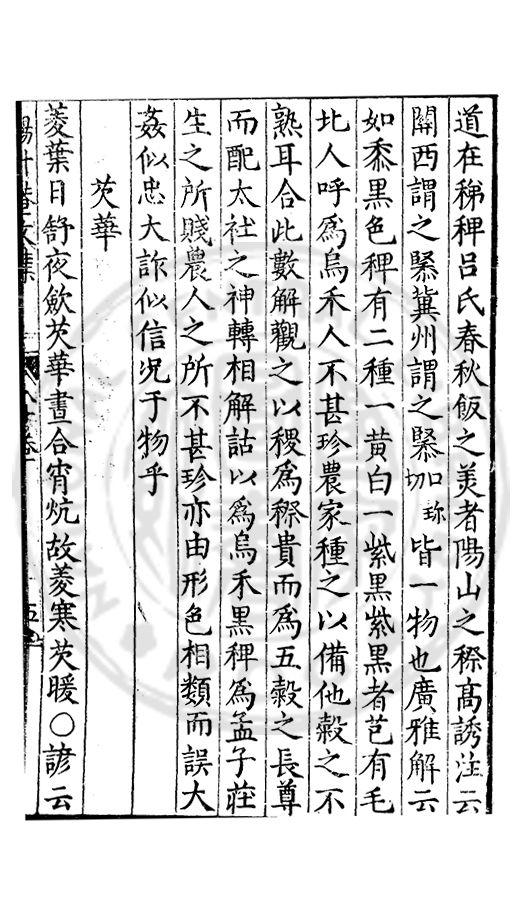 道在稊稗呂氏春秋飯之美者陽山之穄高誘注云
關西謂之䵖冀州謂之䵖𡊠珎皆一物也廣雅解云
如黍黑色稗有二種一黄白一紫黑紫黑者芑有毛
北人呼爲烏禾人不甚珍農家種之以備他糓之不
熟耳合此數解觀之以稷爲穄貴而爲五糓之長尊
而配太社之神轉相解詁以爲烏禾黑稗爲孟子莊
生之所賤農人之所不甚珍亦由形色相類而誤大
姦似忠大詐似信况于物乎
芡華
菱葉日舒夜歛芡華晝合宵炕故菱寒芡暖○諺云